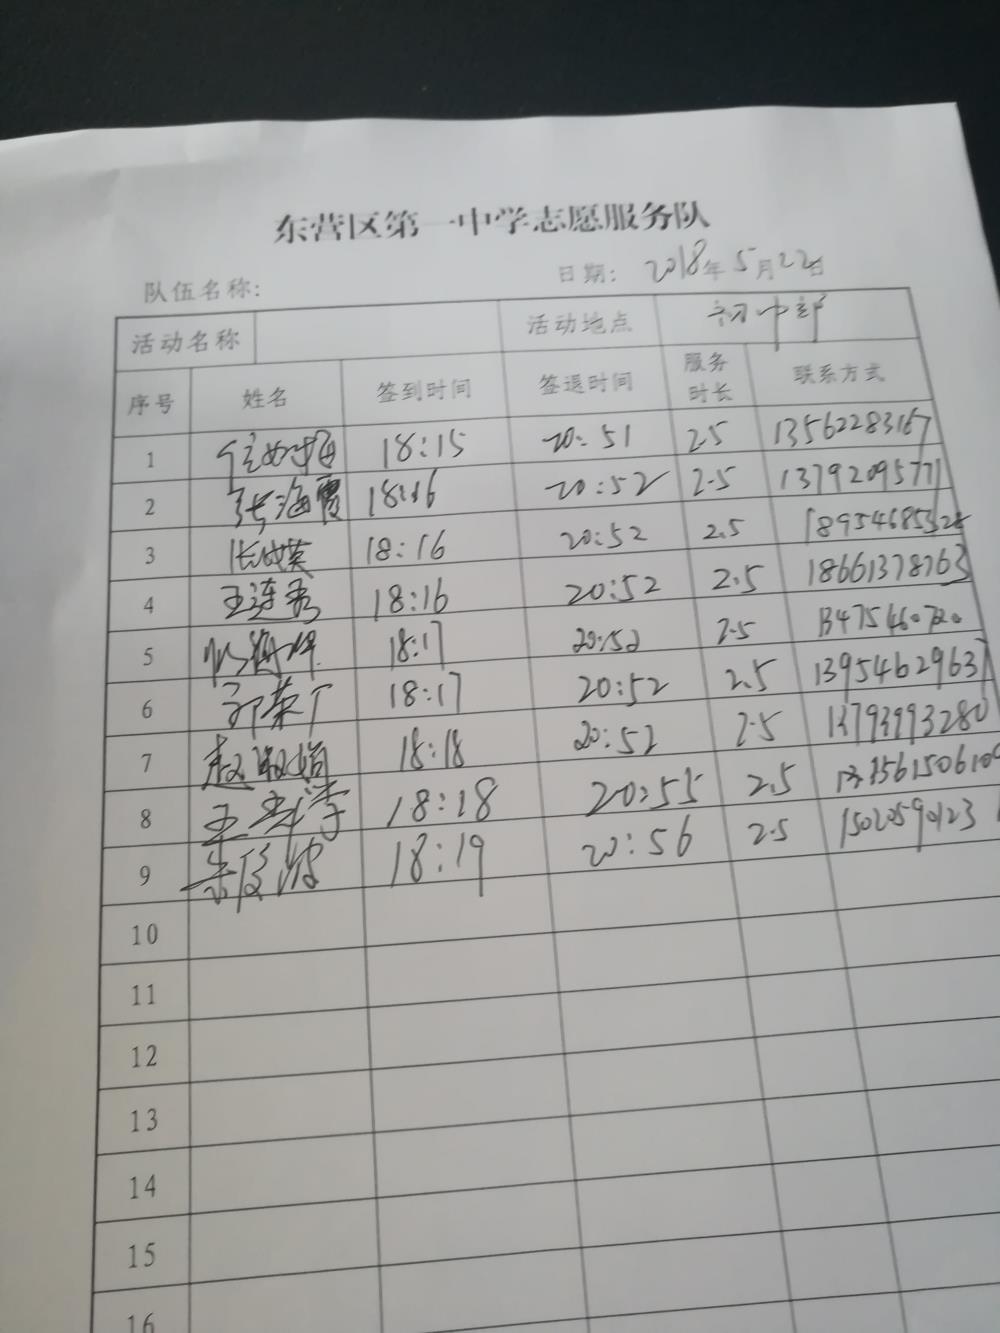 东营区第一中学志愿服务队
队伍名称: 日期: 2018年5月22日
活动名称 活动地点 初中部
序号 姓名 签到时间 签退时间 服务时长 联系方式
1 18:15 20:51 2.5 13562283167
2 张海霞 18:16 20:52 2.5 13792095771
3 18:16 20:52 2.5
4 王连秀 18:16 20:52 2.5 18661378763
5 18:17 20:52 2.5 13475460720
6 郭荣广 18:17 20:52 2.5 13954629637
7 18:18 20:52 2.5 13793993280
8 18:18 20:55 2.5
9 18:19 20:56 2.5 15020590123
10
11
12
13
14
15
16